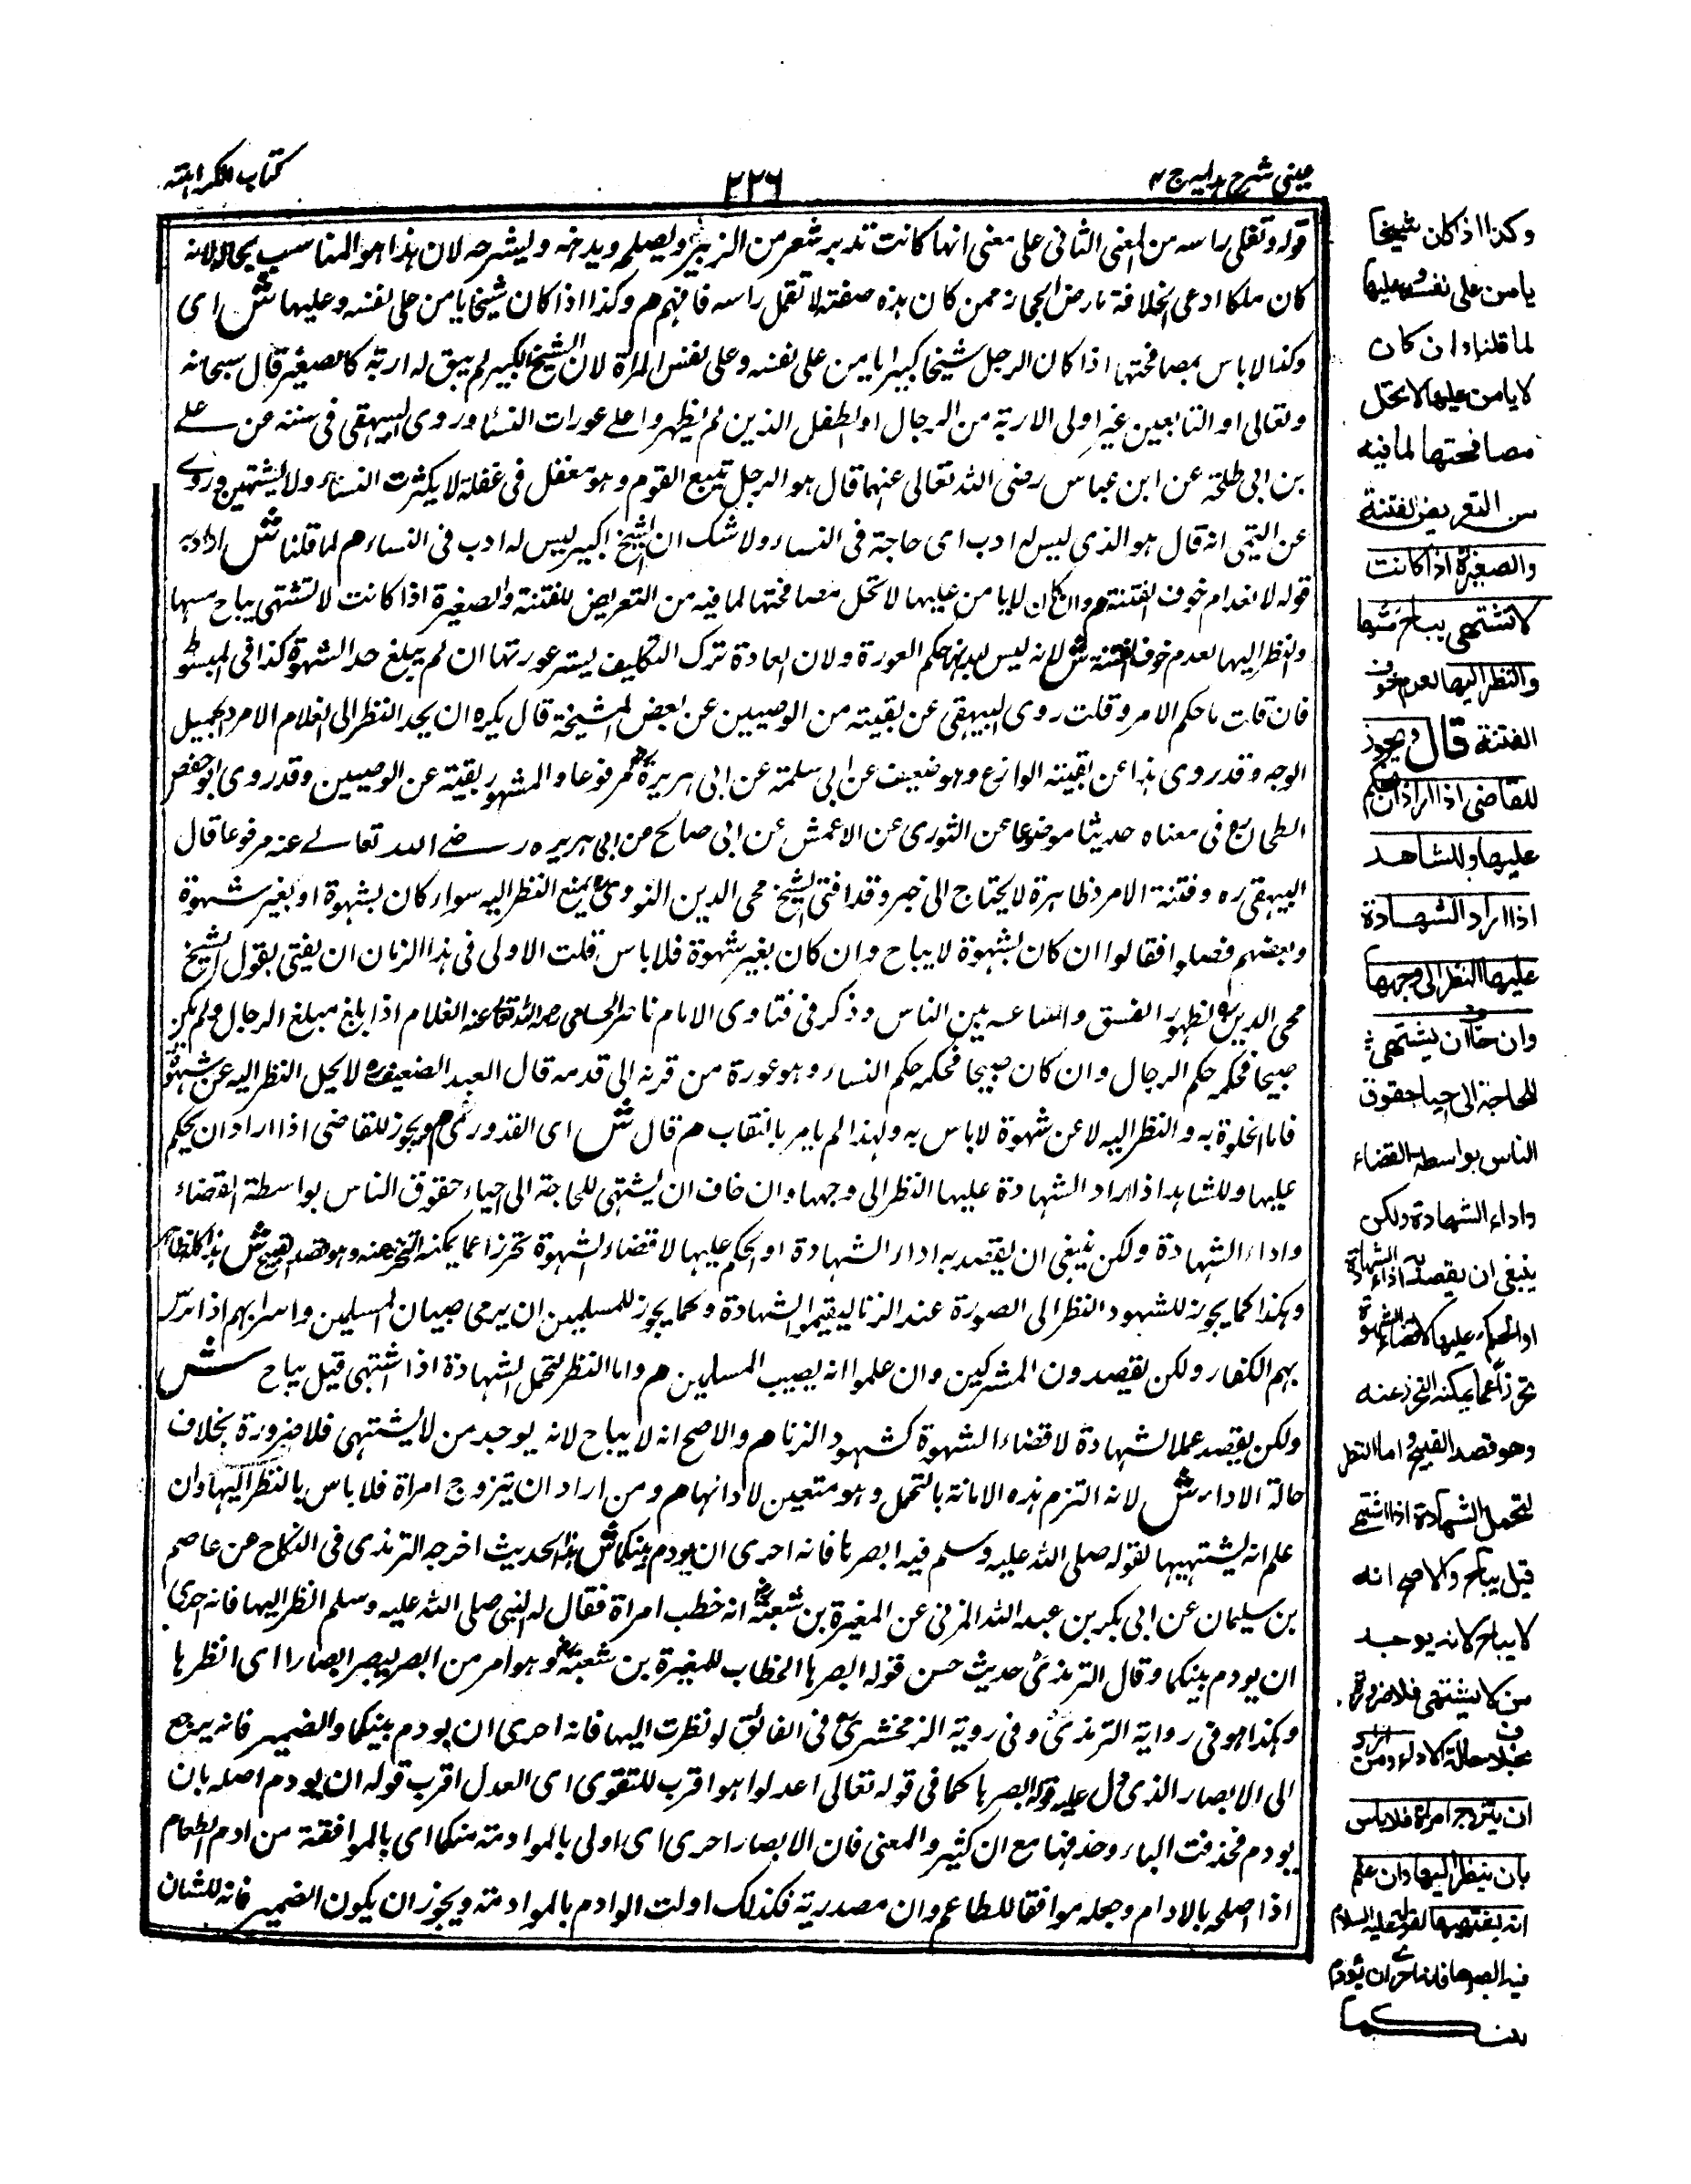 عینی شرح ہدایہ ج ۴
۲۲۶
کتاب الکراہتہ
قوله وتفلى راسه من المعنى الثانى على معنى انها كانت تدبر شعر من الزبير ويصلحه ويدخنه وليشرحه لان هذا هو المناسب بحاله لانه
كان ملكا ادعى الخلافة بارض الحجاز ممن كان بذه صفته لا تقمل راسه فافهم م وكذا اذا كان شيخا يامن على نفسه وعليها ش اى
وكذا لا باس بمصافحتها اذا كان الرجل شيخا كبيرا يامن على نفسه وعلى نفس المراة لان الشيخ الكبير لم يبق له اربة كالصغير قال سبحانه
وتعالى او التابعين غير اولى الاربة من الرجال او الطفل الذين لم يظهروا على عورات النساء وروى البيهقى فى سننه عن على
بن ابى طلحة عن ابن عباس رضى الله تعالى عنهما قال هو الرجل يتبع القوم وهو مغفل فى غفلة لا يكترث النساء ولا يشتهين وروى
عن التيمى انه قال هو الذى ليس له ادب اى حاجة فى النساء ولا شك ان الشيخ الكبير ليس له ادب فى النساء م لما قلنا ش اراد به
قوله لانعدام خوف الفتنة م وان كان لا يامن عليها لا تحل مصافحتها لما فيه من التعريض للفتنة والصغيرة اذا كانت لا تشتهى يباح مسها
والنظر اليها لعدم خوف الفتنة ش لانه ليس لبدنها حكم العورة ولان العادة ترك التكليف بستر عورتها ان لم يبلغ حد الشهوة كذا فى المبسوط
فان قلت ما حكم الامرد قلت روى البيهقى عن بقية من الوصيين عن بعض المشيخة قال يكره ان يحد النظر الى الغلام الامرد الجميل
الوجه وقد روى هذا عن بقية الوازع وهو ضعيف عن ابى سلمة عن ابى هريرة مرفوعا والمشهور بقية عن الوصيين وقد روى ابو حفص
الطحان فى معناه حديثا موضوعا عن الثورى عن الاعمش عن ابى صالح من ابى هريره رضے الله تعالے عنه مرفوعا قال
البيهقى ره وفتنة الامرد ظاهرة لا يحتاج الى خبر وقد افتى الشيخ محى الدين النووى بمنع النظر اليه سواء كان بشهوة او بغير شهوة
وبعضهم فصلوا فقالوا ان كان بشهوة لا يباح وان كان بغير شهوة فلا باس قلت الاولى فى هذا الزمان ان يفتى بقول الشيخ
محى الدين لظهور الفسق بين الناس وذكر فى فتاوى الامام ناصر الغلام اذا بلغ مبلغ الرجال ولم يكن
صبيحا فحكمه حكم الرجال وان كان صبيحا فحكمه حكم النساء وهو عورة من قرنه الى قدمه قال العبد الضعيف لا يحل النظر اليه عن شهوة
فاما الخلوة به والنظر اليه لا عن شهوة لا باس به ولهذا لم يامر بالنقاب م قال ش اى القدورى م ويجوز للقاضى اذا اراد ان يحكم
عليها وللشاهد اذا اراد الشهادة عليها النظر الى وجهها وان خاف ان يشتهى للحاجة الى احياء حقوق الناس بواسطة القضاء
واداء الشهادة ولكن ينبغى ان يقصد به اداء الشهادة او الحكم عليها لا قضاء الشهوة تحرزا عما يمكنه التحرز عنه وهو قصد القبيح ش هذا كله ظاهر
وهكذا كما يجوز للشهود النظر الى الصورة عند الزنا ليقيموا الشهادة وكما يجوز للمسلمين ان يرمى صبيان المسلمين واسراهم اذا تترس
بهم الكفار ولكن يقصدون المشركين وان علموا انه يصيب المسلمين م واما النظر لتحمل الشهادة اذا اشتهى قيل يباح ش
ولكن يقصد عملا لشهادة لا قضاء الشهوة كشهود الزنا م والاصح انه لا يباح لانه يوجد من لا يشتهى فلا ضرورة بخلاف
حالة الاداء ش لانه التزم هذه الامانة بالتحمل وهو متعين لادائها م ومن اراد ان يتزوج امراة فلا باس بالنظر اليها وان
علم انه يشتهيها لقوله صلى الله عليه وسلم فيه ابصرها فانه احرى ان يودم بينكما ش هذا الحديث اخرجه الترمذى فى النكاح عن عاصم
بن سليمان عن ابى بكر بن عبد الله المزنى عن المغيرة بن شعبة انه خطب امراة فقال له النبى صلى الله عليه وسلم انظر اليها فانه احرى
ان يودم بينكما وقال الترمذى حديث حسن قوله ابصرها الخطاب للمغيرة بن شعبة وهو امر من ابصر يبصر ابصارا اى انظرها
وهكذا هو فى رواية الترمذى وفى روية الزمخشرى فى الفائق لو نظرت اليها فانه احرى ان يودم بينكما والضمير فانه يرجع
الى الابصار الذى دل عليه قوله ابصرها كما فى قوله تعالى اعدلوا هو اقرب للتقوى اى العدل اقرب قوله ان يودم اصله بان
يودم فحذفت الباء وحذفها مع ان كثير والمعنى فان الابصار احرى اى اولى بالموادمة منكما اى بالموافقة من ادم الطعام
اذا اصلحه بالادام وجعله موافقا للطاعم وان مصدرية فكذلك اولت الوادم بالموادمة ويجوز ان يكون الضمير فانه للشان
وكذا اذا كان شيخا
يامن على نفسه وعليها
لما قلنا وان كان
لا يامن عليها لا تحل
مصافحتها لما فيه
من التعريض للفتنة
والصغيرة اذا كانت
لا تشتهى يباح مسها
والنظر اليها لعدم خوف
الفتنة قال ويجوز
للقاضى اذا اراد ان يحكم
عليها وللشاهد
اذا اراد الشهادة
عليها النظر الى وجهها
وان خاف ان يشتهى
للحاجة الى احياء حقوق
الناس بواسطة القضاء
واداء الشهادة ولكن
ينبغى ان يقصد به اداء الشهادة
او الحكم عليها لا قضاء الشهوة
تحرزا عما يمكنه التحرز عنه
وهو قصد القبيح واما النظر
لتحمل الشهادة اذا اشتهى
قيل يباح والاصح انه
لا يباح لانه يوجد
من لا يشتهى فلا ضرورة
بخلاف حالة الاداء ومن اراد
ان يتزوج امراة فلا باس
بان ينظر اليها وان علم
انه يشتهيها لقوله عليه السلام
فيه ابصرها فانه احرى ان يودم
بينكما